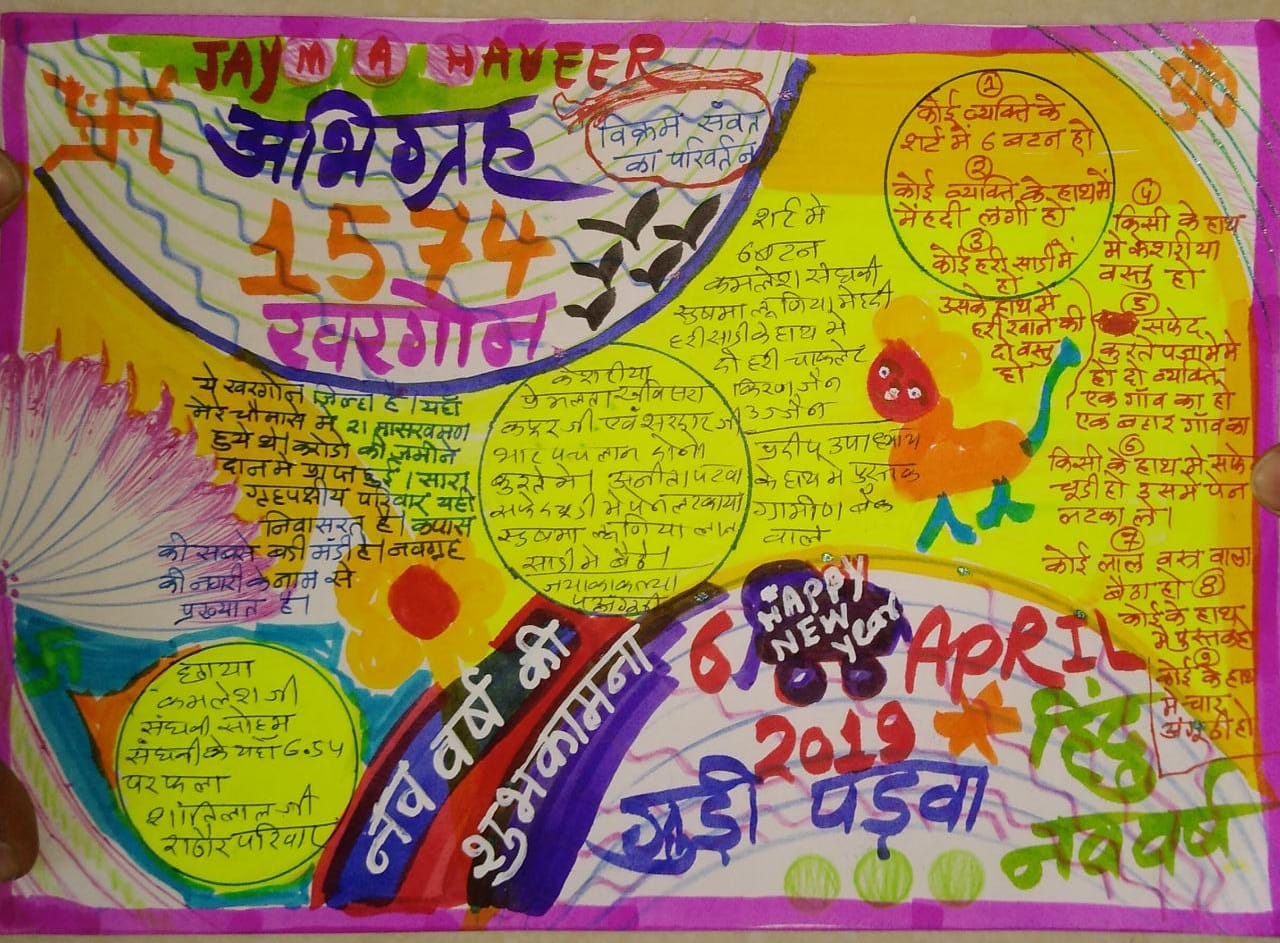 JAY MAHAVEER
अभिग्रह
1574
खरगोन
विक्रम संवत
का परिवर्तन
ये खरगोन जिल्हा है। यहाँ
मेरे चौमास में 21 मासखमण
हुये थे। करोडो की जमीन
दान मे प्राप्त हुई। सारा
गृहपक्षीय परिवार यही
निवासरत है। कपास
की सबसे बडी मंडी है। नवग्रह
की नगरी के नाम से
प्रख्यात है।
छगाया
कमलेश जी
संघवी सोहम
संघवी के यहाँ 6.54
पर फला
शांतिलाल जी
राठौर परिवार
केशरीया
प्रेमलता
कद्दर जी एवं सरदार जी
भाटपचलाना दोनो
कुरते मे। अनीता पटवा
सफेद चूडी मे पेन लटकाया
सुषमा लूणिया लाल
साडी मे बैठे।
शर्ट मे
6 बटन
कमलेश संघवी
सुषमा लूणिया मेहदी
हरी साडी के हाथ मे
दो हरी चाकलेट
किरण जैन
उज्जैन
प्रदीप उपाध्याय
के हाथ मे पुस्तक
गामीण बैंक
वाले
ॐ
①
कोई व्यक्ति के
शर्ट में 6 बटन हो
②
कोई व्यक्ति के हाथ में
मेंहदी लगी हो
③
कोई हरी साडी में
हो
उसके हाथ मे
हरी खाने की
दो वस्तु
हो
④
किसी के हाथ
मे केशरीया
वस्तु हो
⑤
सफेद
कुरते पजामे मे
हो दो व्यक्ति
एक गाँव का हो
एक बहार गाँव का
⑥
किसी के हाथ मे सफेद
चूडी हो इसमे पेन
लटका ले।
⑦
कोई लाल वस्त्र वाला
बैठा हो ⑧
कोई के हाथ
मे पुस्तक हो
⑨
कोई के हाथ
मे चार
अंगूठी हो
नव वर्ष की
शुभकामना
HAPPY
NEW
year
6 APRIL
2019
गुड़ी पड़वा
हिंदु
नववर्ष